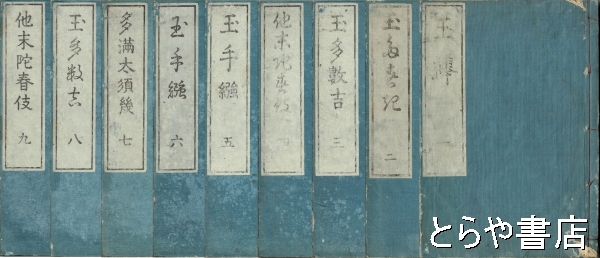 玉襷 一
玉多 記 二
玉多數吉 三
他末陀春伎
玉手繦 五
玉手繦 六
多満太須幾 七
玉多数吉 八
他末陀春伎 九
とらや書店